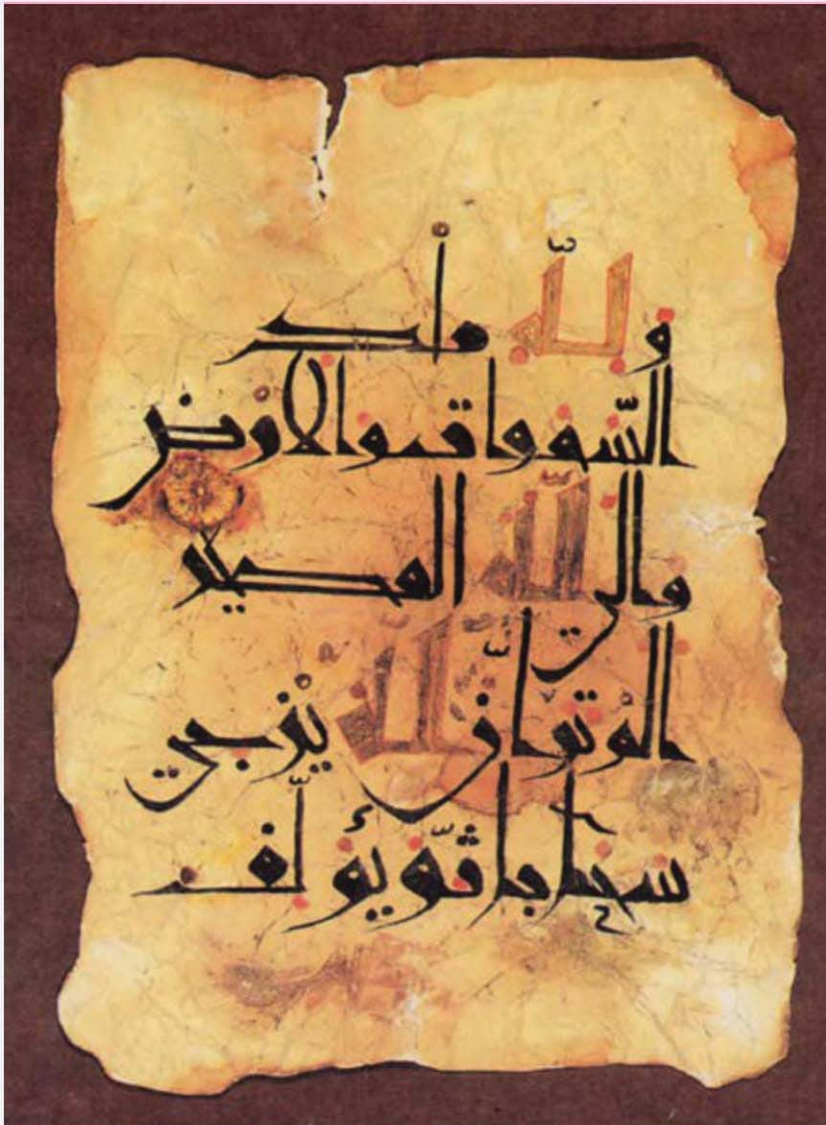 وللّه ملك
السّموات والارض
والى اللّه المصير
الم تر انّ اللّه يزجي
سحابا ثمّ يؤلّف